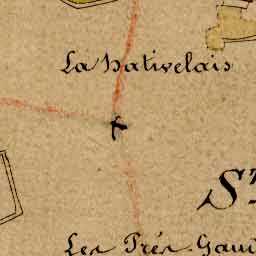 La Hativelais
St
Les Prés Gau